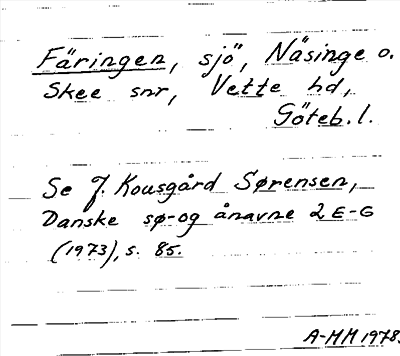 Färingen, sjö, Näsinge o.
Skee snr, Vette hd,
Göteb. l.
Se J. Kousgård Sørensen,
Danske sø- og ånavne 2 E-G
(1973), s. 85.
A-MM 1978.